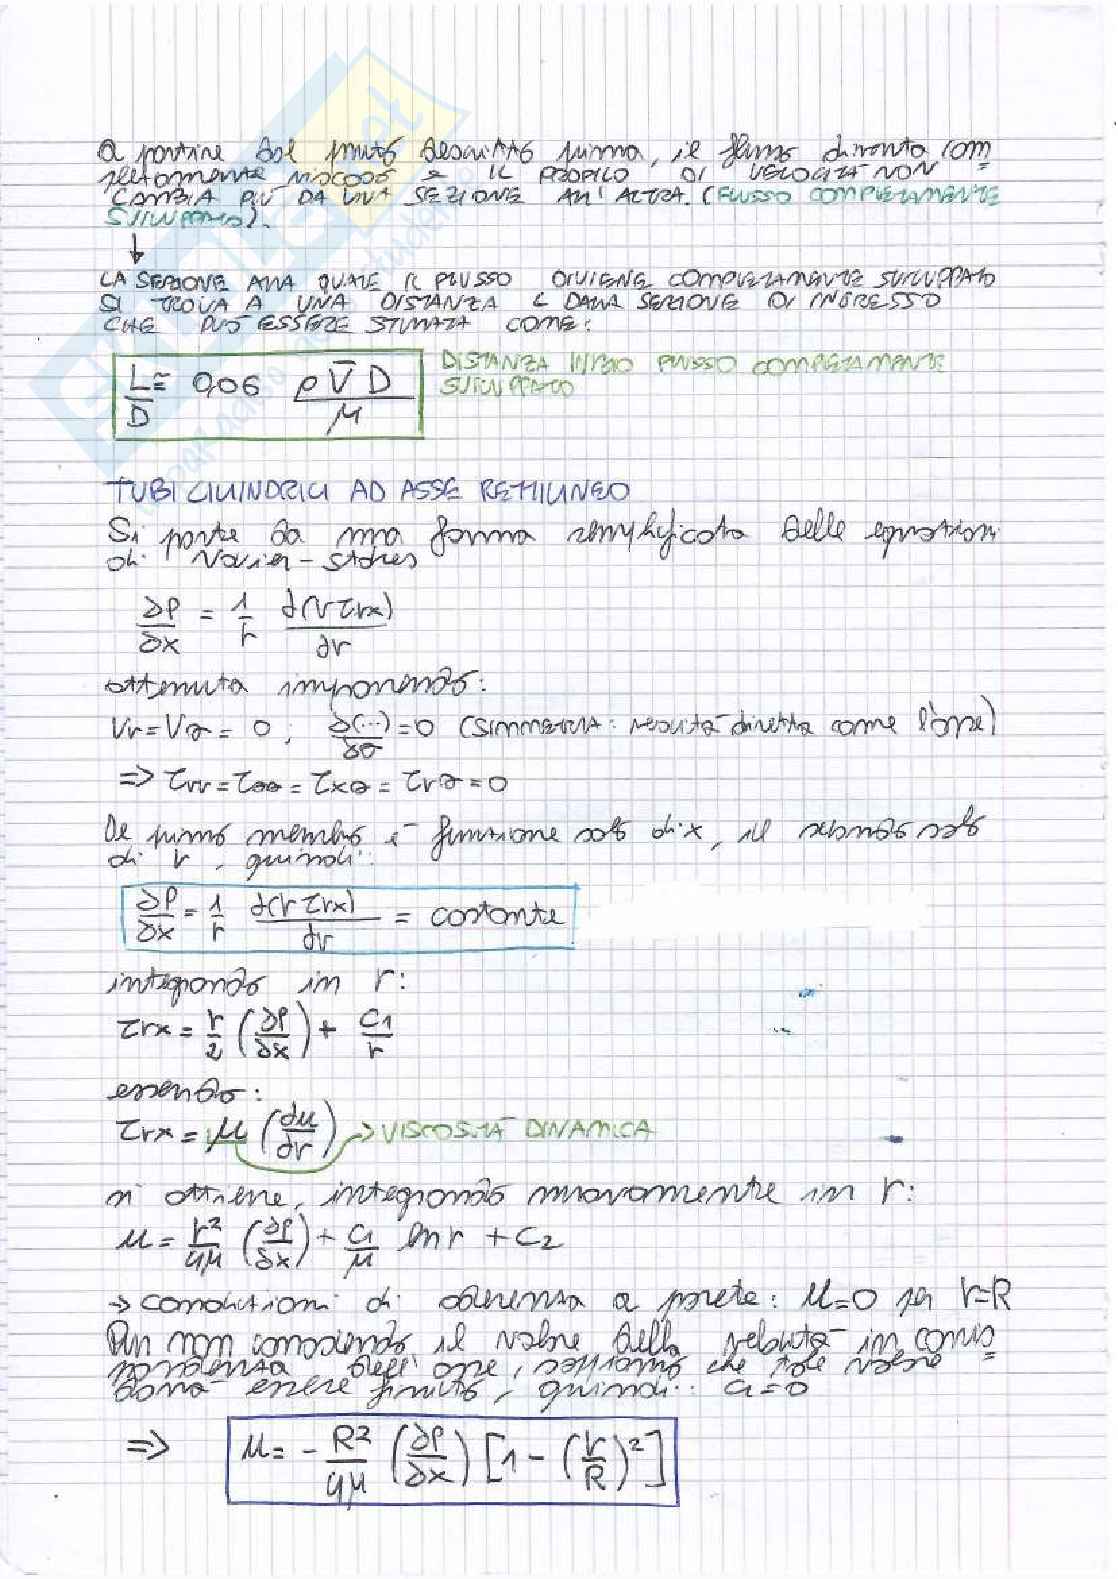 a partire dal punto descritto prima, il flusso diventa com=
pletamente viscoso e IL PROFILO DI VELOCITÀ NON
CAMBIA PIÙ DA UNA SEZIONE ALL'ALTRA. (FLUSSO COMPLETAMENTE
SVILUPPATO).
↓
LA SEZIONE ALLA QUALE IL FLUSSO DIVIENE COMPLETAMENTE SVILUPPATO
SI TROVA A UNA DISTANZA L DALLA SEZIONE DI INGRESSO
CHE PUÒ ESSERE STIMATA COME:
L/D ≅ 0,06 ρ V̄ D / μ
DISTANZA INIZIO FLUSSO COMPLETAMENTE
SVILUPPATO
TUBI CILINDRICI AD ASSE RETTILINEO
Si parte da una forma semplificata delle equazioni
di Navier-Stokes
∂p/∂x = 1/r d(rτrx)/dr
ottenuta imponendo:
Vr = Vθ = 0 ; ∂(...)/∂θ = 0 (SIMMETRIA: velocità diretta come l'asse)
=> τrr = τθθ = τxθ = τrθ = 0
Il primo membro è funzione solo di x, il secondo solo
di r, quindi:
∂p/∂x = 1/r d(rτrx)/dr = costante
integrando in r:
τrx = r/2 (∂p/∂x) + C1/r
essendo:
τrx = μ (du/dr) → VISCOSITÀ DINAMICA
si ottiene, integrando nuovamente in r:
u = r²/4μ (∂p/∂x) + C1/μ ln r + C2
→ condizioni di aderenza a parete: u=0 per r=R
Pur non conoscendo il valore della velocità in corris=
pondenza dell'asse, sappiamo che tale valore
dovrà essere finito, quindi: C1=0
=> u = - R²/4μ (∂p/∂x) [1 - (r/R)²]